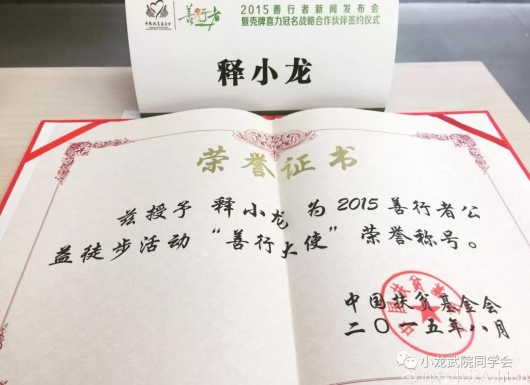 善行者
2015善行者新闻发布会
暨壳牌喜力冠名战略合作伙伴签约仪式
释小龙
荣誉证书
兹授予 释小龙 为2015善行者公
益徒步活动“善行大使”荣誉称号。
中国扶贫基金会
二〇一五年八月
小龙武院同学会